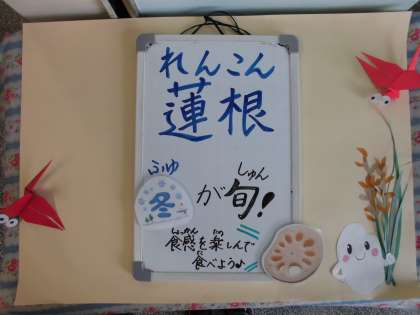 れんこん
蓮根
ふゆ しゅん
冬が旬!
しょっかん たの
食感を楽しんで
た
食べよう♪